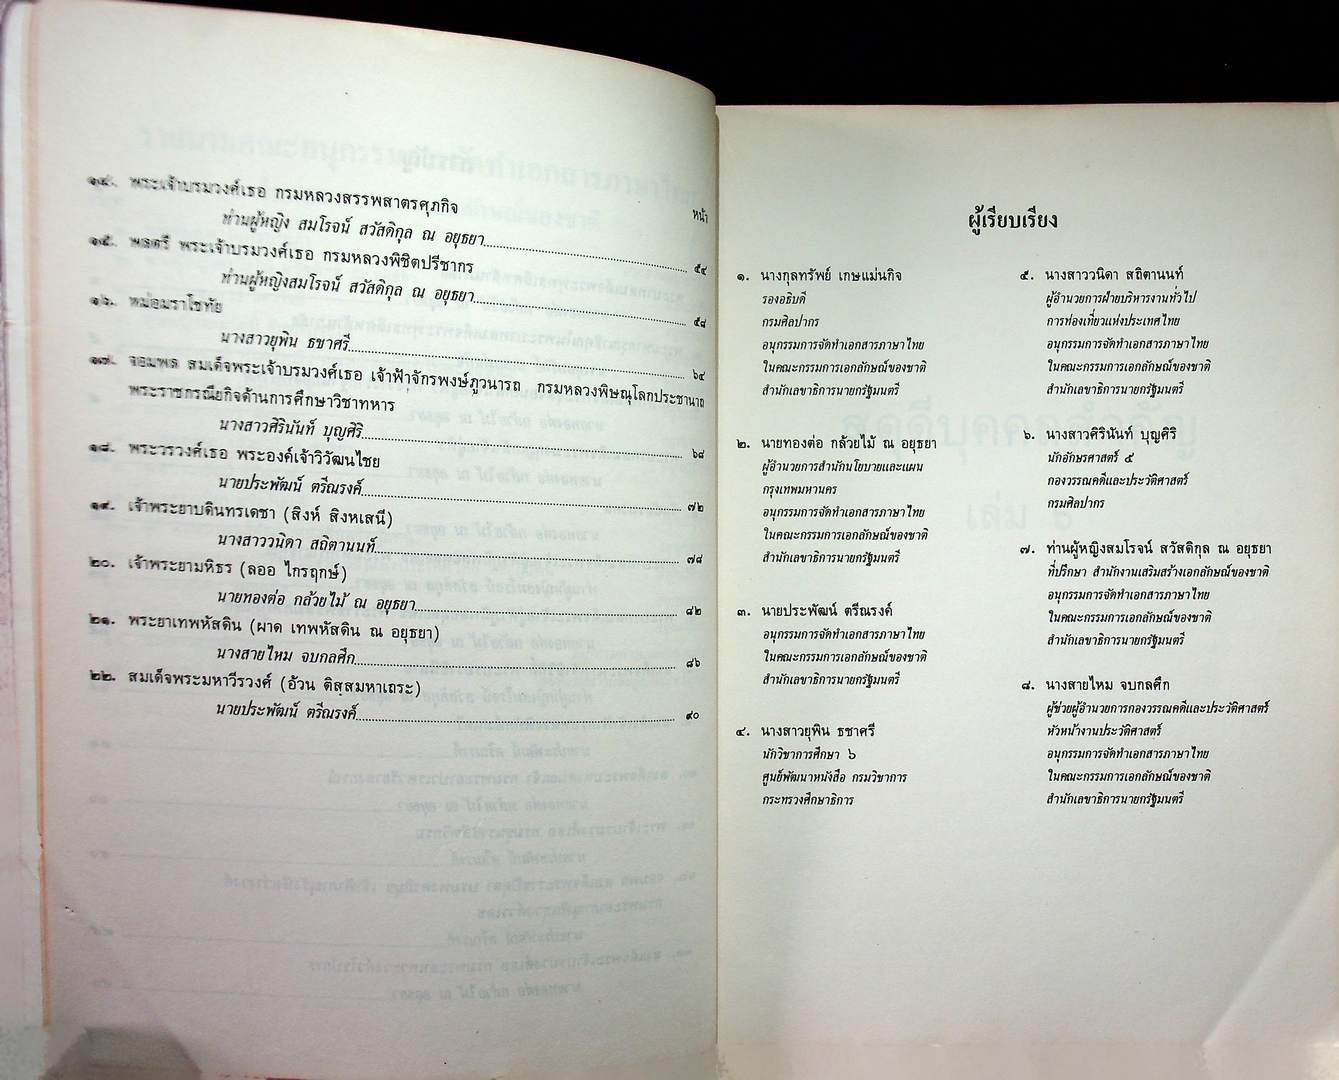 หน้า
๑๔. พระเจ้าบรมวงศ์เธอ กรมหลวงสรรพสาตรศุภกิจ
ท่านผู้หญิง สมโรจน์ สวัสดิกุล ณ อยุธยา ๕๔
๑๕. พลตรี พระเจ้าบรมวงศ์เธอ กรมหลวงพิชิตปรีชากร
ท่านผู้หญิงสมโรจน์ สวัสดิกุล ณ อยุธยา ๕๘
๑๖. หม่อมราโชทัย
นางสาวยุพิน ธชาศรี ๖๔
๑๗. จอมพล สมเด็จพระเจ้าบรมวงศ์เธอ เจ้าฟ้าจักรพงษ์ภูวนารถ กรมหลวงพิษณุโลกประชานารถ
พระราชกรณียกิจด้านการศึกษาวิชาทหาร
นางสาวศิรินันท์ บุญศิริ ๖๘
๑๘. พระวรวงศ์เธอ พระองค์เจ้าวิวัฒนไชย
นายประพัฒน์ ตรีณรงค์ ๗๒
๑๙. เจ้าพระยาบดินทรเดชา (สิงห์ สิงหเสนี)
นางสาววนิดา สถิตานนท์ ๗๘
๒๐. เจ้าพระยามหิธร (ลออ ไกรฤกษ์)
นายทองต่อ กล้วยไม้ ณ อยุธยา ๘๒
๒๑. พระยาเทพหัสดิน (ผาด เทพหัสดิน ณ อยุธยา)
นางสายไหม จบกลศึก ๘๖
๒๒. สมเด็จพระมหาวีรวงศ์ (อ้วน ติสฺสมหาเถระ)
นายประพัฒน์ ตรีณรงค์ ๙๐
ผู้เรียบเรียง
๑. นางกุลทรัพย์ เกษแม่นกิจ
รองอธิบดี
กรมศิลปากร
อนุกรรมการจัดทำเอกสารภาษาไทย
ในคณะกรรมการเอกลักษณ์ของชาติ
สำนักเลขาธิการนายกรัฐมนตรี
๒. นายทองต่อ กล้วยไม้ ณ อยุธยา
ผู้อำนวยการสำนักนโยบายและแผน
กรุงเทพมหานคร
อนุกรรมการจัดทำเอกสารภาษาไทย
ในคณะกรรมการเอกลักษณ์ของชาติ
สำนักเลขาธิการนายกรัฐมนตรี
๓. นายประพัฒน์ ตรีณรงค์
อนุกรรมการจัดทำเอกสารภาษาไทย
ในคณะกรรมการเอกลักษณ์ของชาติ
สำนักเลขาธิการนายกรัฐมนตรี
๔. นางสาวยุพิน ธชาศรี
นักวิชาการศึกษา ๖
ศูนย์พัฒนาหนังสือ กรมวิชาการ
กระทรวงศึกษาธิการ
๕. นางสาววนิดา สถิตานนท์
ผู้อำนวยการฝ่ายบริหารงานทั่วไป
การท่องเที่ยวแห่งประเทศไทย
อนุกรรมการจัดทำเอกสารภาษาไทย
ในคณะกรรมการเอกลักษณ์ของชาติ
สำนักเลขาธิการนายกรัฐมนตรี
๖. นางสาวศิรินันท์ บุญศิริ
นักอักษรศาสตร์ ๕
กองวรรณคดีและประวัติศาสตร์
กรมศิลปากร
๗. ท่านผู้หญิงสมโรจน์ สวัสดิกุล ณ อยุธยา
ที่ปรึกษา สำนักงานเสริมสร้างเอกลักษณ์ของชาติ
อนุกรรมการจัดทำเอกสารภาษาไทย
ในคณะกรรมการเอกลักษณ์ของชาติ
สำนักเลขาธิการนายกรัฐมนตรี
๘. นางสายไหม จบกลศึก
ผู้ช่วยผู้อำนวยการกองวรรณคดีและประวัติศาสตร์
หัวหน้างานประวัติศาสตร์
อนุกรรมการจัดทำเอกสารภาษาไทย
ในคณะกรรมการเอกลักษณ์ของชาติ
สำนักเลขาธิการนายกรัฐมนตรี